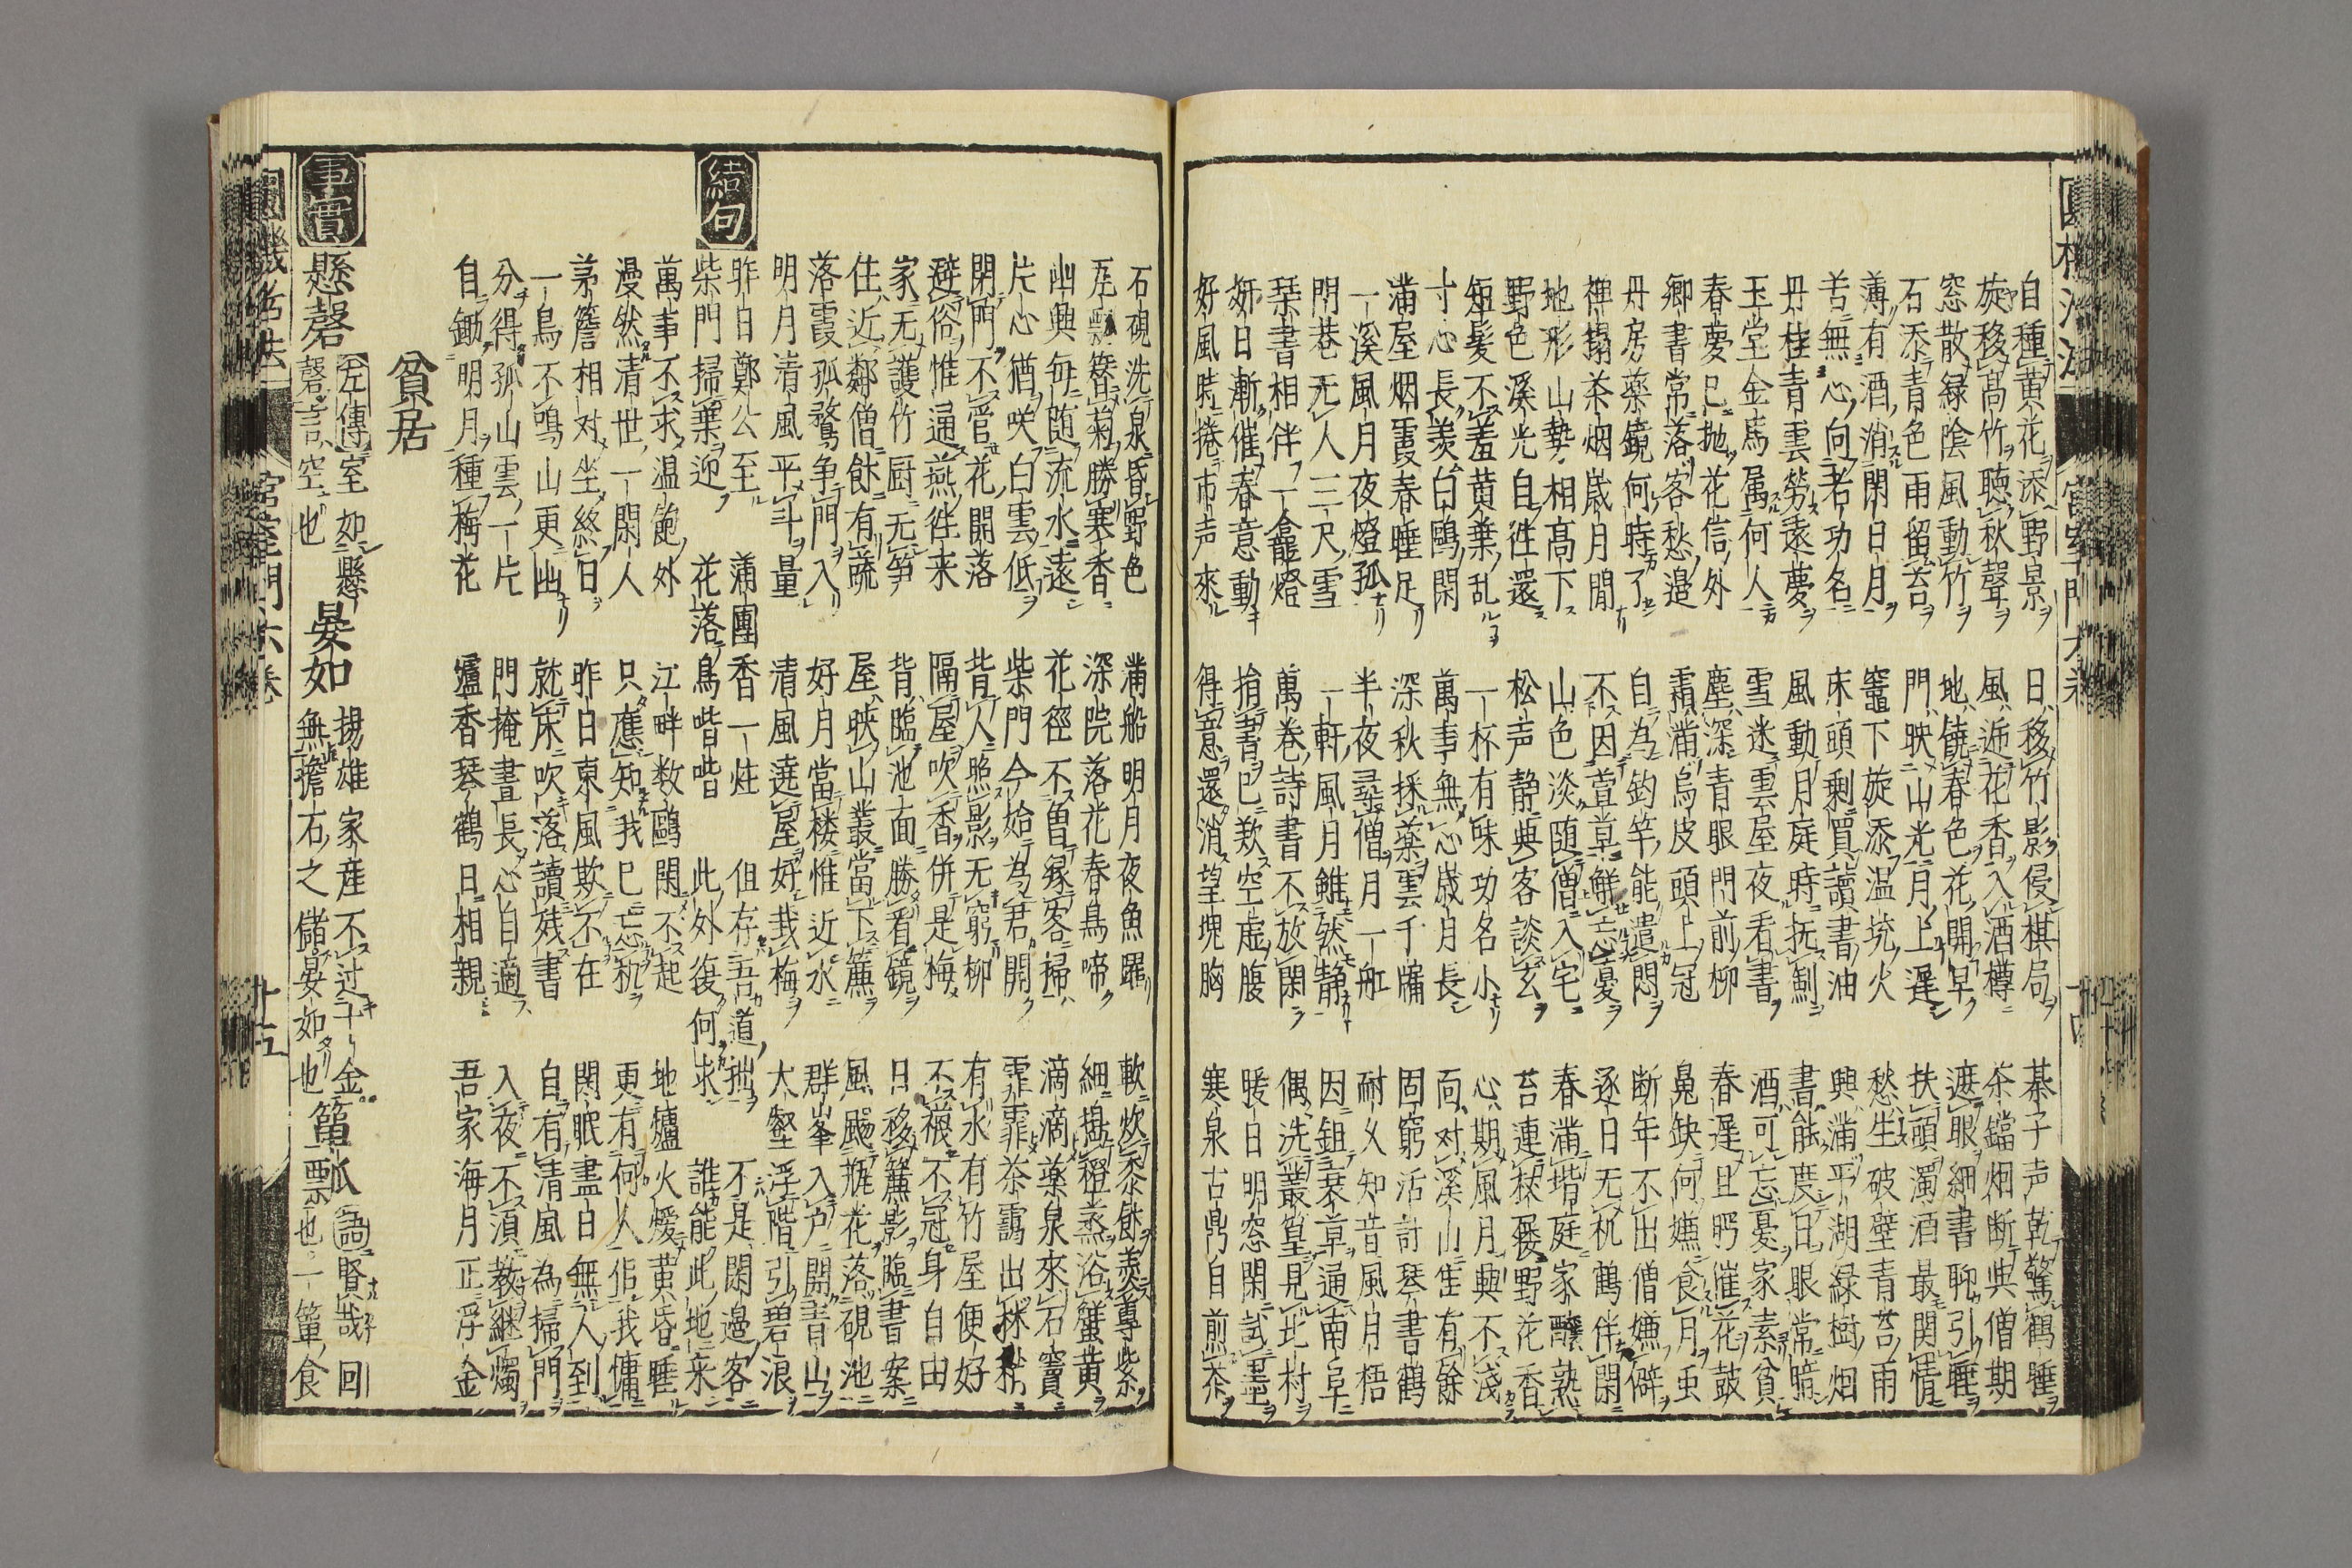 自種黄花添野景 日移竹影侵棋局 棊子声乾驚鶴睡
旋移髙竹聴秋聲 風逓花香入酒樽 茶鐺烟断與僧期
窓散緑陰風動竹 地饒春色花開早 遮眼細書聊引睡
石添青色雨留苔 門映山光月上遅 扶頭濁酒最関情
薄有酒消閑日月 竈下旋添温焼火 愁生破壁青苔雨
苦無心向若功名 床頭剰買讀書油 興滿平湖緑樹烟
丹桂青雲勞遠夢 風動月庭時抚劍 書能度日眼常暗
玉堂金馬属何人 雪迷雲屋夜看書 酒可忘憂家素貧
春夢已抛花信外 塵深青眼門前柳 春遲且眄催花鼓
卿書常落客愁邉 霜滿烏皮頭上冠 鼻缺何嫌食月虫
丹房藥鏡何時了 自為釣竿能遣悶 断年不出僧嫌僻
禅榻茶烟歳月閒 不因萱草觧忘憂 逐日无机鶴伴閑
地形山勢相髙下 山色淡随僧入宅 春滿堦庭家釀熟
野色溪光自往還 松声静與客談玄 苔連杖屨野花香
短髪不羞黄葉乱 一杯有味功名小 心期風月興不淺
寸心長羨白鷗閑 萬事無心歳月長 面对溪山隹有餘
滿屋烟霞春睡足 深秋採藥雲千牖 固窮活計琴書鶴
一溪風月夜燈孤 半夜尋僧月一舡 耐久知音風月梧
門巷无人三尺雪 一軒風月雖然静 因鉏荒草通南阜
琴書相伴一龕燈 萬巻詩書不放閑 偶洗叢篁見北村
妍日漸催春意動 揹書已歎空虚腹 暖日明窓閑試墨
好風時捲市声來 得意還消塊胸 寒泉古鼎自煎茶
石硯洗泉昏野色 滿船明月夜魚躍 軟炊黍飯羨蓴紫
瓦瓢簪菊勝寒香 深院落花春鳥啼 細搗橙蒸浴蟹黄
幽興毎随流水遠 花徑不曽縁客掃 滴滴藥泉來石竇
片心猶咲白雲低 柴門今始為君開 霏霏茶靄出林梢
閉門不管花開落 背人照影无窮柳 有水有竹屋便好
避俗惟通燕徃来 隔屋吹香併是梅 不襪不冠身自由
家无護竹厨无笋 背臨池面勝看鏡 日移簾影臨書案
住近鄰僧飰有蔬 屋映山叢當下簾 風颺瓶花落硯池
落霞孤鶩争門入 好月當楼惟近水 群峯入户開青山
明月清風平斗量 清風遶屋好栽梅 大壑浮階引碧浪
結句 昨日鄭公至 蒲團香一炷 但存吾道拙 不是閑邉客
柴門掃葉迎 花落鳥喈喈 此外復何求 誰能此地来
萬事不求温飽外 江畔数鷗閑不起 地爐火煖黄昏睡
漫然清世一閑人 只應知我已忘机 更有何人佀我慵
茅簷相对坐終日 昨日東風欺不在 閑眠盡日無人到
一鳥不鳴山更幽 就床吹落讀残書 自有清風為掃門
分得孤山雲一片 門掩晝長心自適 入夜不湏教継燭
自鋤明月種梅花 爐香琴鶴日相親 吾家海月正浮金
貧居
事實 懸磬 左傳室如懸磬言空也 晏如 揚雄家産不过十金無擔石之儲晏如也 箪瓢 語賢哉回也一箪食